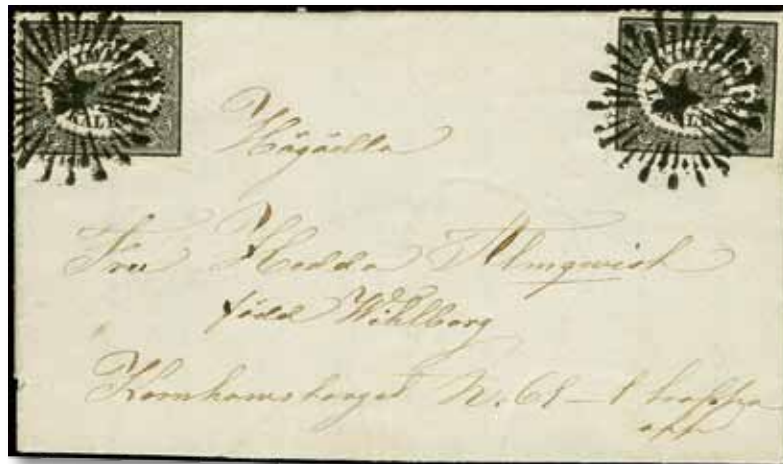 Högädla
Fru Hedda Almqwist
född Wåhlberg
Kornhamnstorget N. 68 – 1 trappa
upp